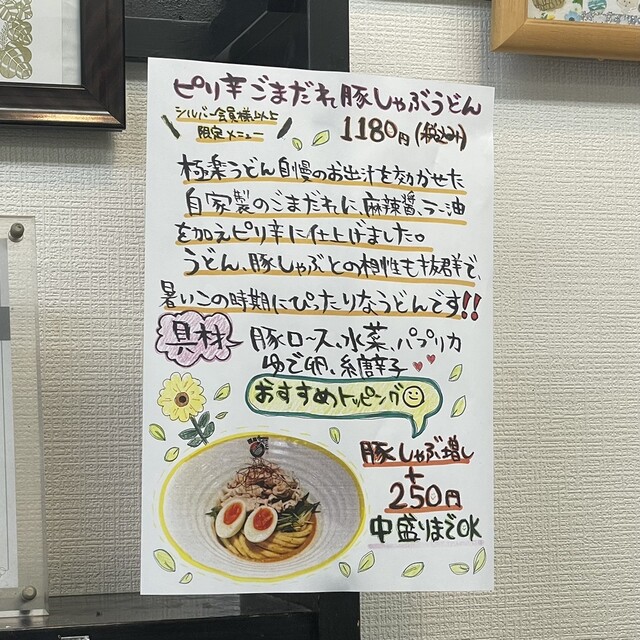 ピリ辛ごまだれ豚しゃぶうどん
シルバー会員様以上
限定メニュー
1180円(税込み)
極楽うどん自慢のお出汁を効かせた
自家製のごまだれに、麻辣醤、ラー油
を加えピリ辛に仕上げました。
うどん、豚しゃぶとの相性も抜群で、
暑いこの時期にぴったりなうどんです!!
具材
豚ロース、水菜、パプリカ
ゆで卵、糸唐辛子
おすすめトッピング
豚しゃぶ増し
+
250円
中盛りまでOK